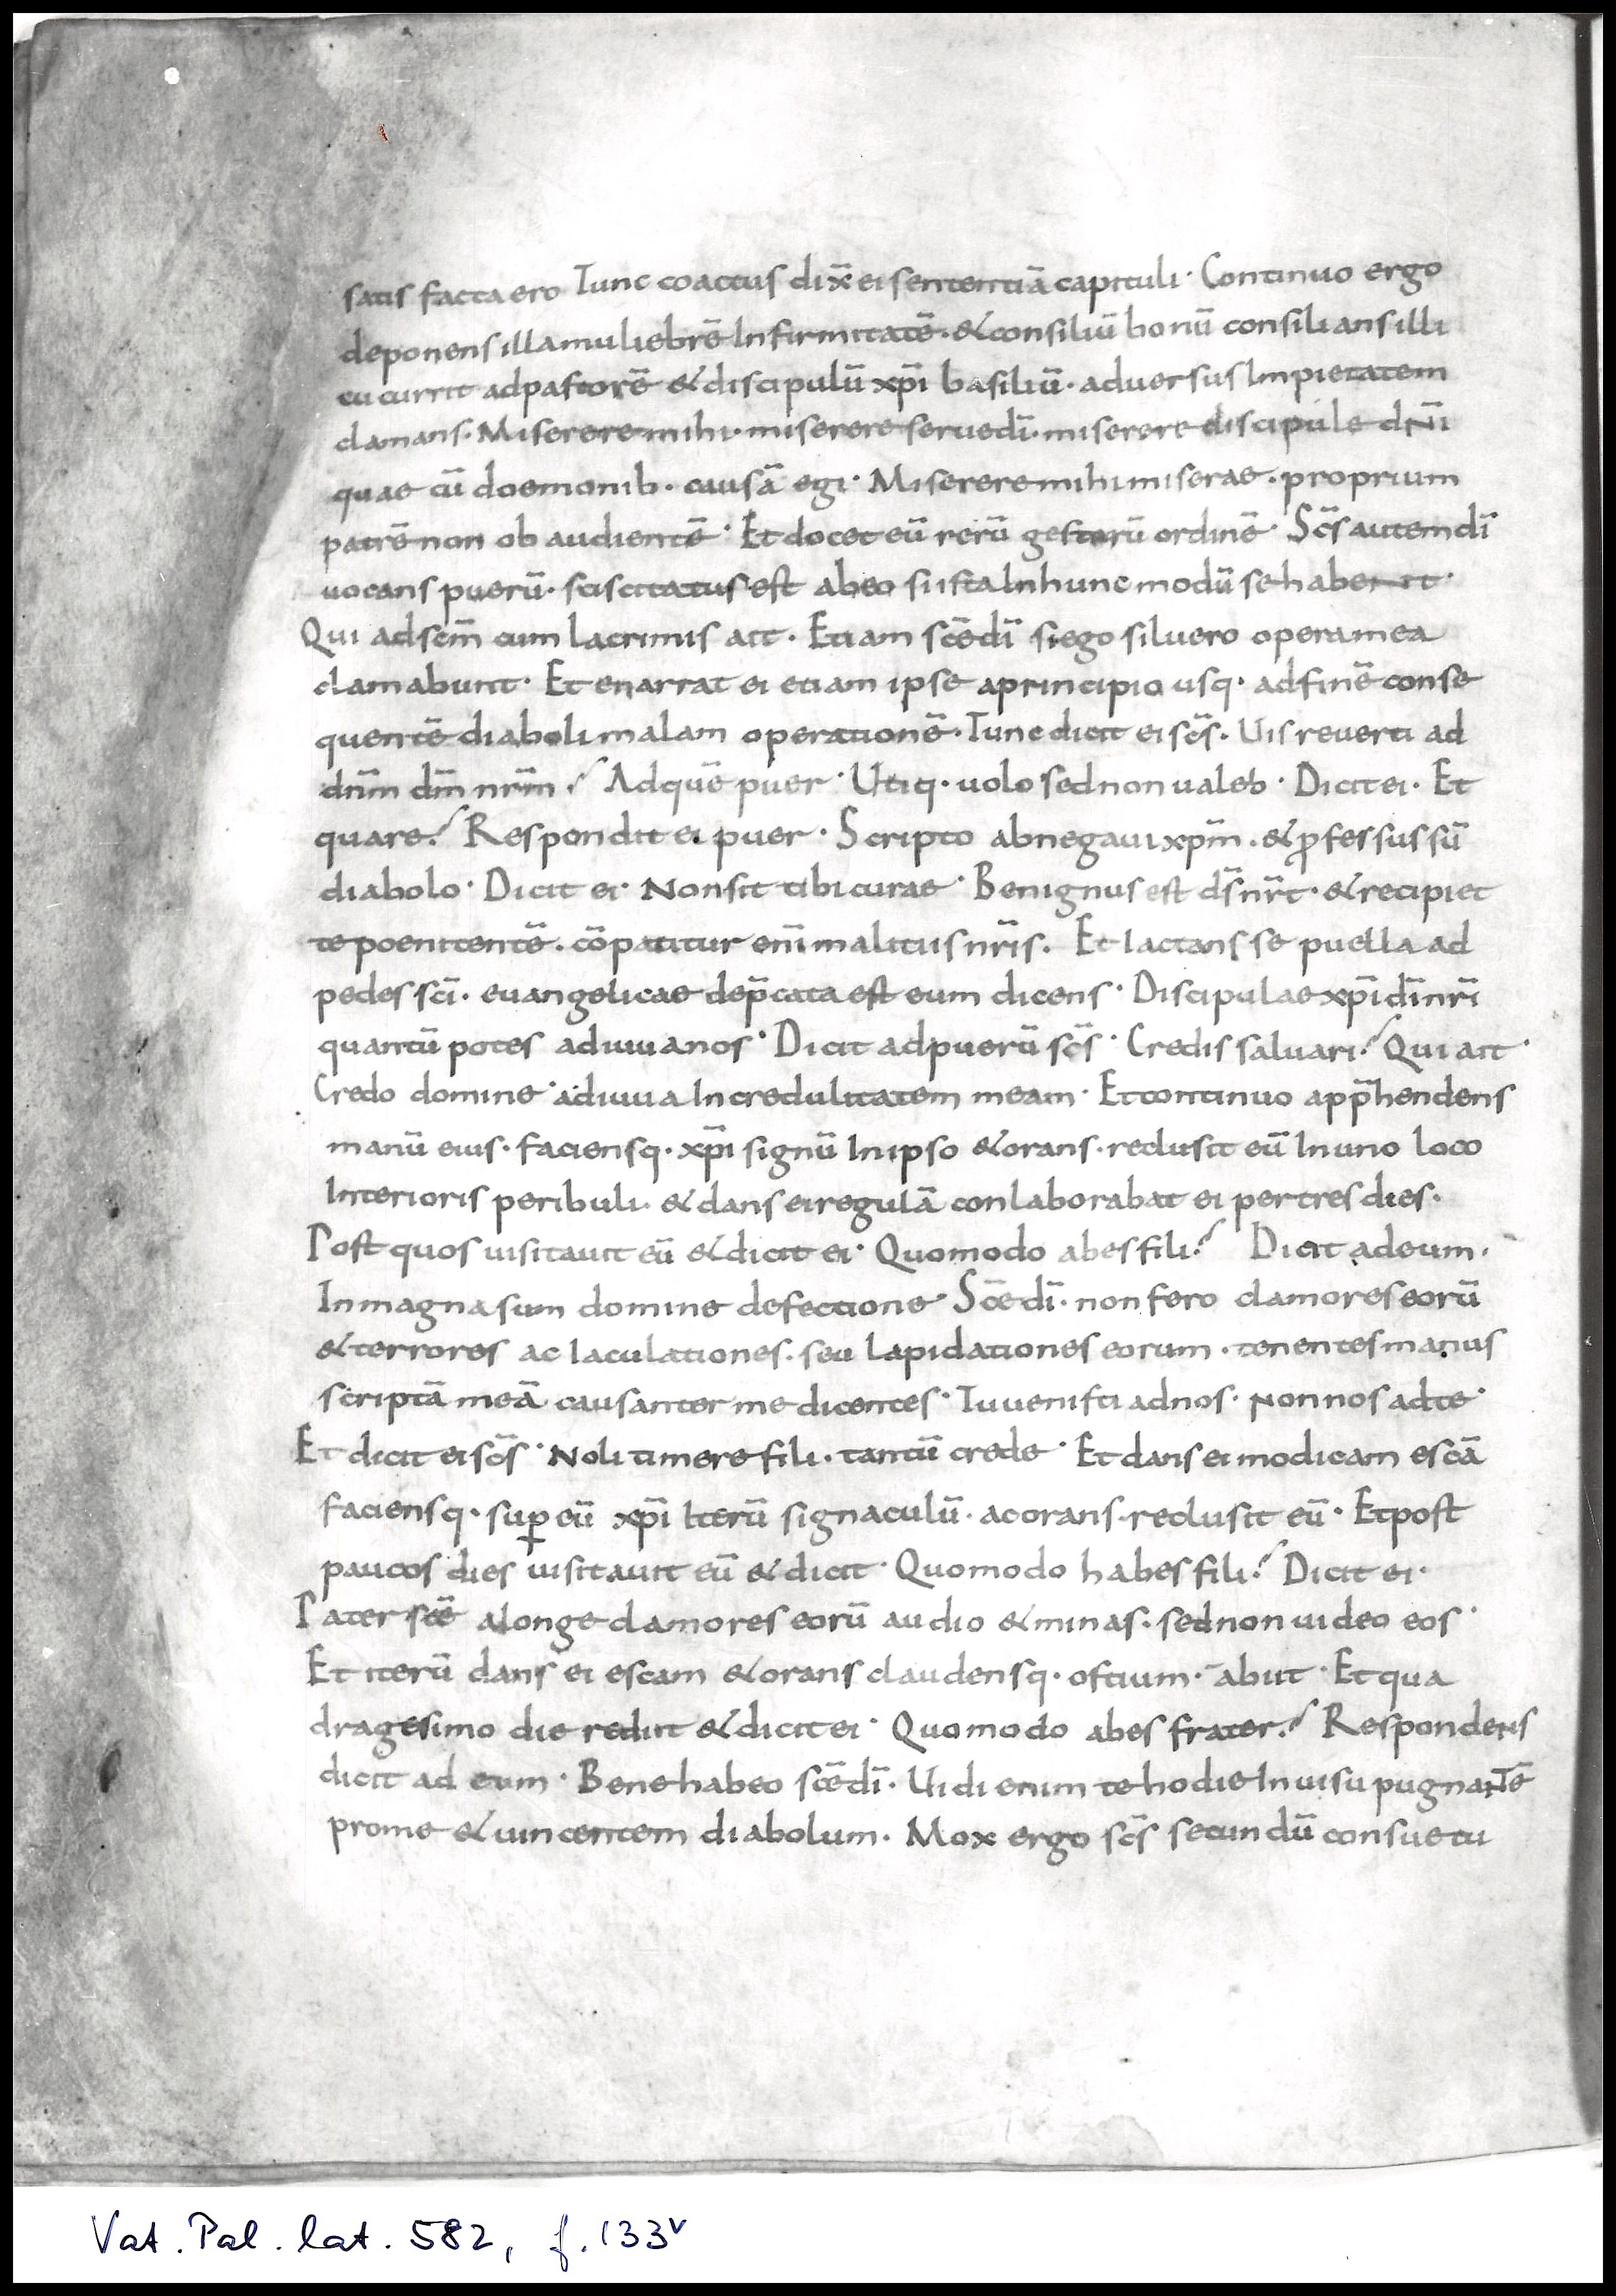 satis facta ero Tunc coactus dix̄ ei sententiā capituli· Continuo ergo
deponens illa muliebrē Infirmitatē· &consiliū bonū consilians illi
cucurrit adpastorē &discipulū xp̄i basiliū· aduersus Impietatem
clamans· Miserere mihi· miserere serue dī· miserere discipule dn̄i
quae cū doemonib· causā egi· Miserere mihi miserae· proprium
patrē non ob audientē· Et docet eū rerū gestarū ordinē· Sc̄s autem dī
uocans puerū· sciscitatus est abeo si ista Inhunc modū se haberent·
Qui ad sc̄m cum lacrimis ait· Etiam sc̄e dī si ego siluero opera mea
clamabunt· Et enarrat ei etiam ipse aprincipio usq· adfinē conse
quentē diaboli malam operationē· Tunc dicit ei sc̄s· Uis reuerti ad
dn̄m dm̄ nr̄m? Adquē puer· Utiq· uolo sed non ualeb· Dicit ei· Et
quare? Respondit ei puer· Scripto abnegaui xp̄m· &ꝓfessus sū
diabolo· Dicit ei· Non sit tibi curae· Benignus est ds̄ nr̄t· &recipiet
te poenitentē· cōpatitur enī malitiis nr̄is· Et Iactans se puella ad
pedes sc̄i· euangelicae dep̄cata est eum dicens· Discipulae xp̄i dī nr̄i
quantū potes adiuua nos· Dicit ad puerū sc̄s· Credis saluari? Qui ait·
Credo domine· adiuua Incredulitatem meam· Et continuo app̄hendens
manū eius· faciensq· xp̄i signū Inipso &orans· reclusit eū Inuno loco
Interioris peribuli· &dans ei regulā conlaborabat ei per tres dies·
Post quos uisitauit eū &dicit ei· Quomodo abes fili? Dicit ad eum·
In magna sum domine defectione· Sc̄e dī· non fero clamores eorū
&terrores ac Iaculationes· seu lapidationes eorum· tenentes manus
scriptā meā causanter me dicentes· Tu uenisti ad nos· Non nos ad te·
Et dicit ei sc̄s· Noli timere fili· tantū crede· Et dans ei modicam escā
faciensq· suꝑ eū xp̄i Iterū signaculū· ac orans· reclusit eū· Et post
paucos dies uisitauit eū &dicit· Quomodo habes fili? Dicit ei·
Pater sc̄e alonge clamores eorū audio &minas· sed non uideo eos·
Et iterū dans ei escam &orans claudensq· ostium· abiit· Et qua
dragesimo die rediit &dicit ei· Quomodo abes frater? Respondens
dicit ad eum· Bene habeo sc̄e dī· Uidi enim te hodie In uisu pugnantē
pro me &uincentem diabolum· Mox ergo sc̄s secundū consuetu
Vat. Pal. lat. 582, f. 133v